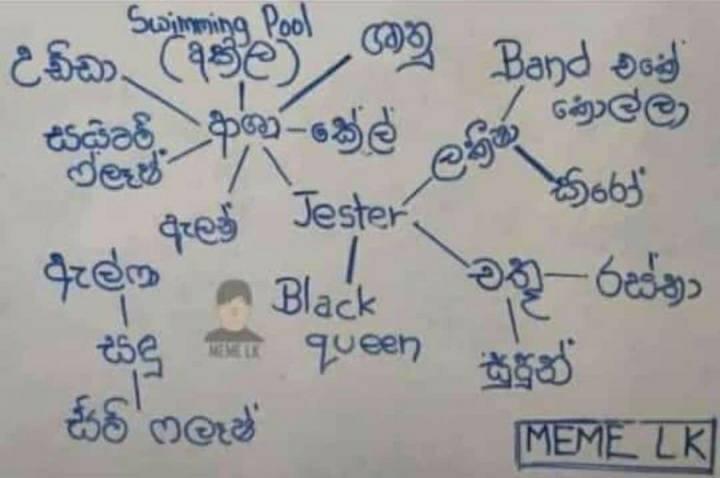 Swimming Pool
(අකිල)
ශානු
උඩ්ඩා
Band එකේ
කොල්ලා
ආශා
කේල්
සයිබර්
ෆ්ලෑෂ්
ලකීෂා
කිරෝ
ඇලන්
Jester
ඇල්ෆා
චතූ
රස්තා
Black
queen
MEME LK
සඳූ
සුපුන්
සීබී ෆලෑෂ්
MEME LK